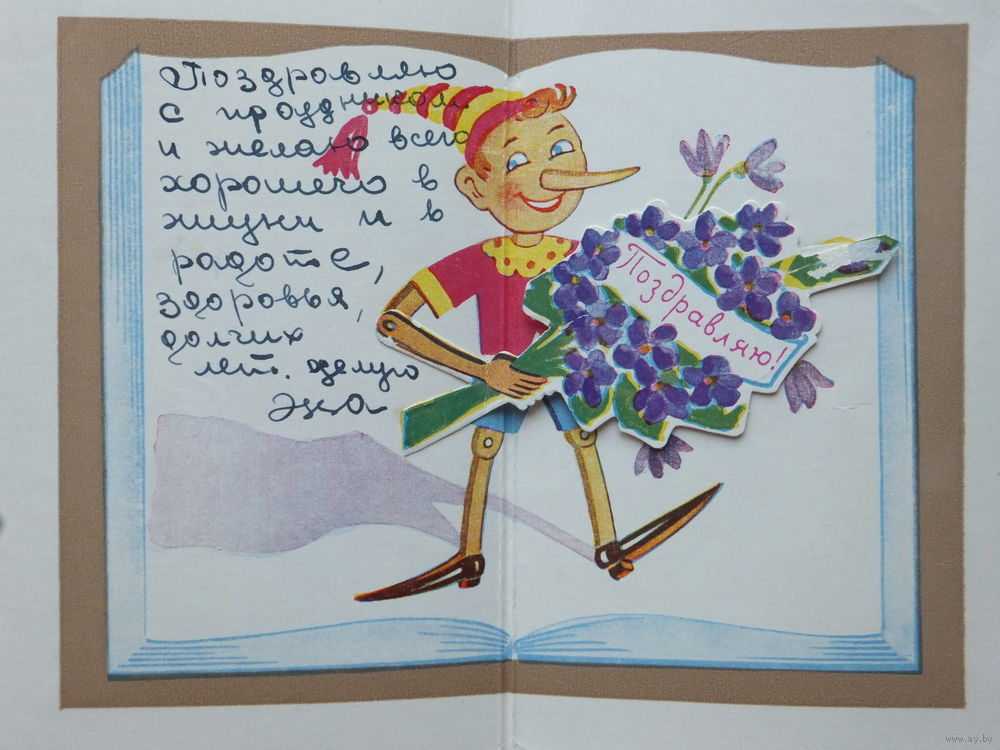 Поздравляю
с праздником
и желаю всего
хорошего в
жизни и в
работе,
здоровья,
долгих
лет. целую
Поздравляю!
www.ay.by